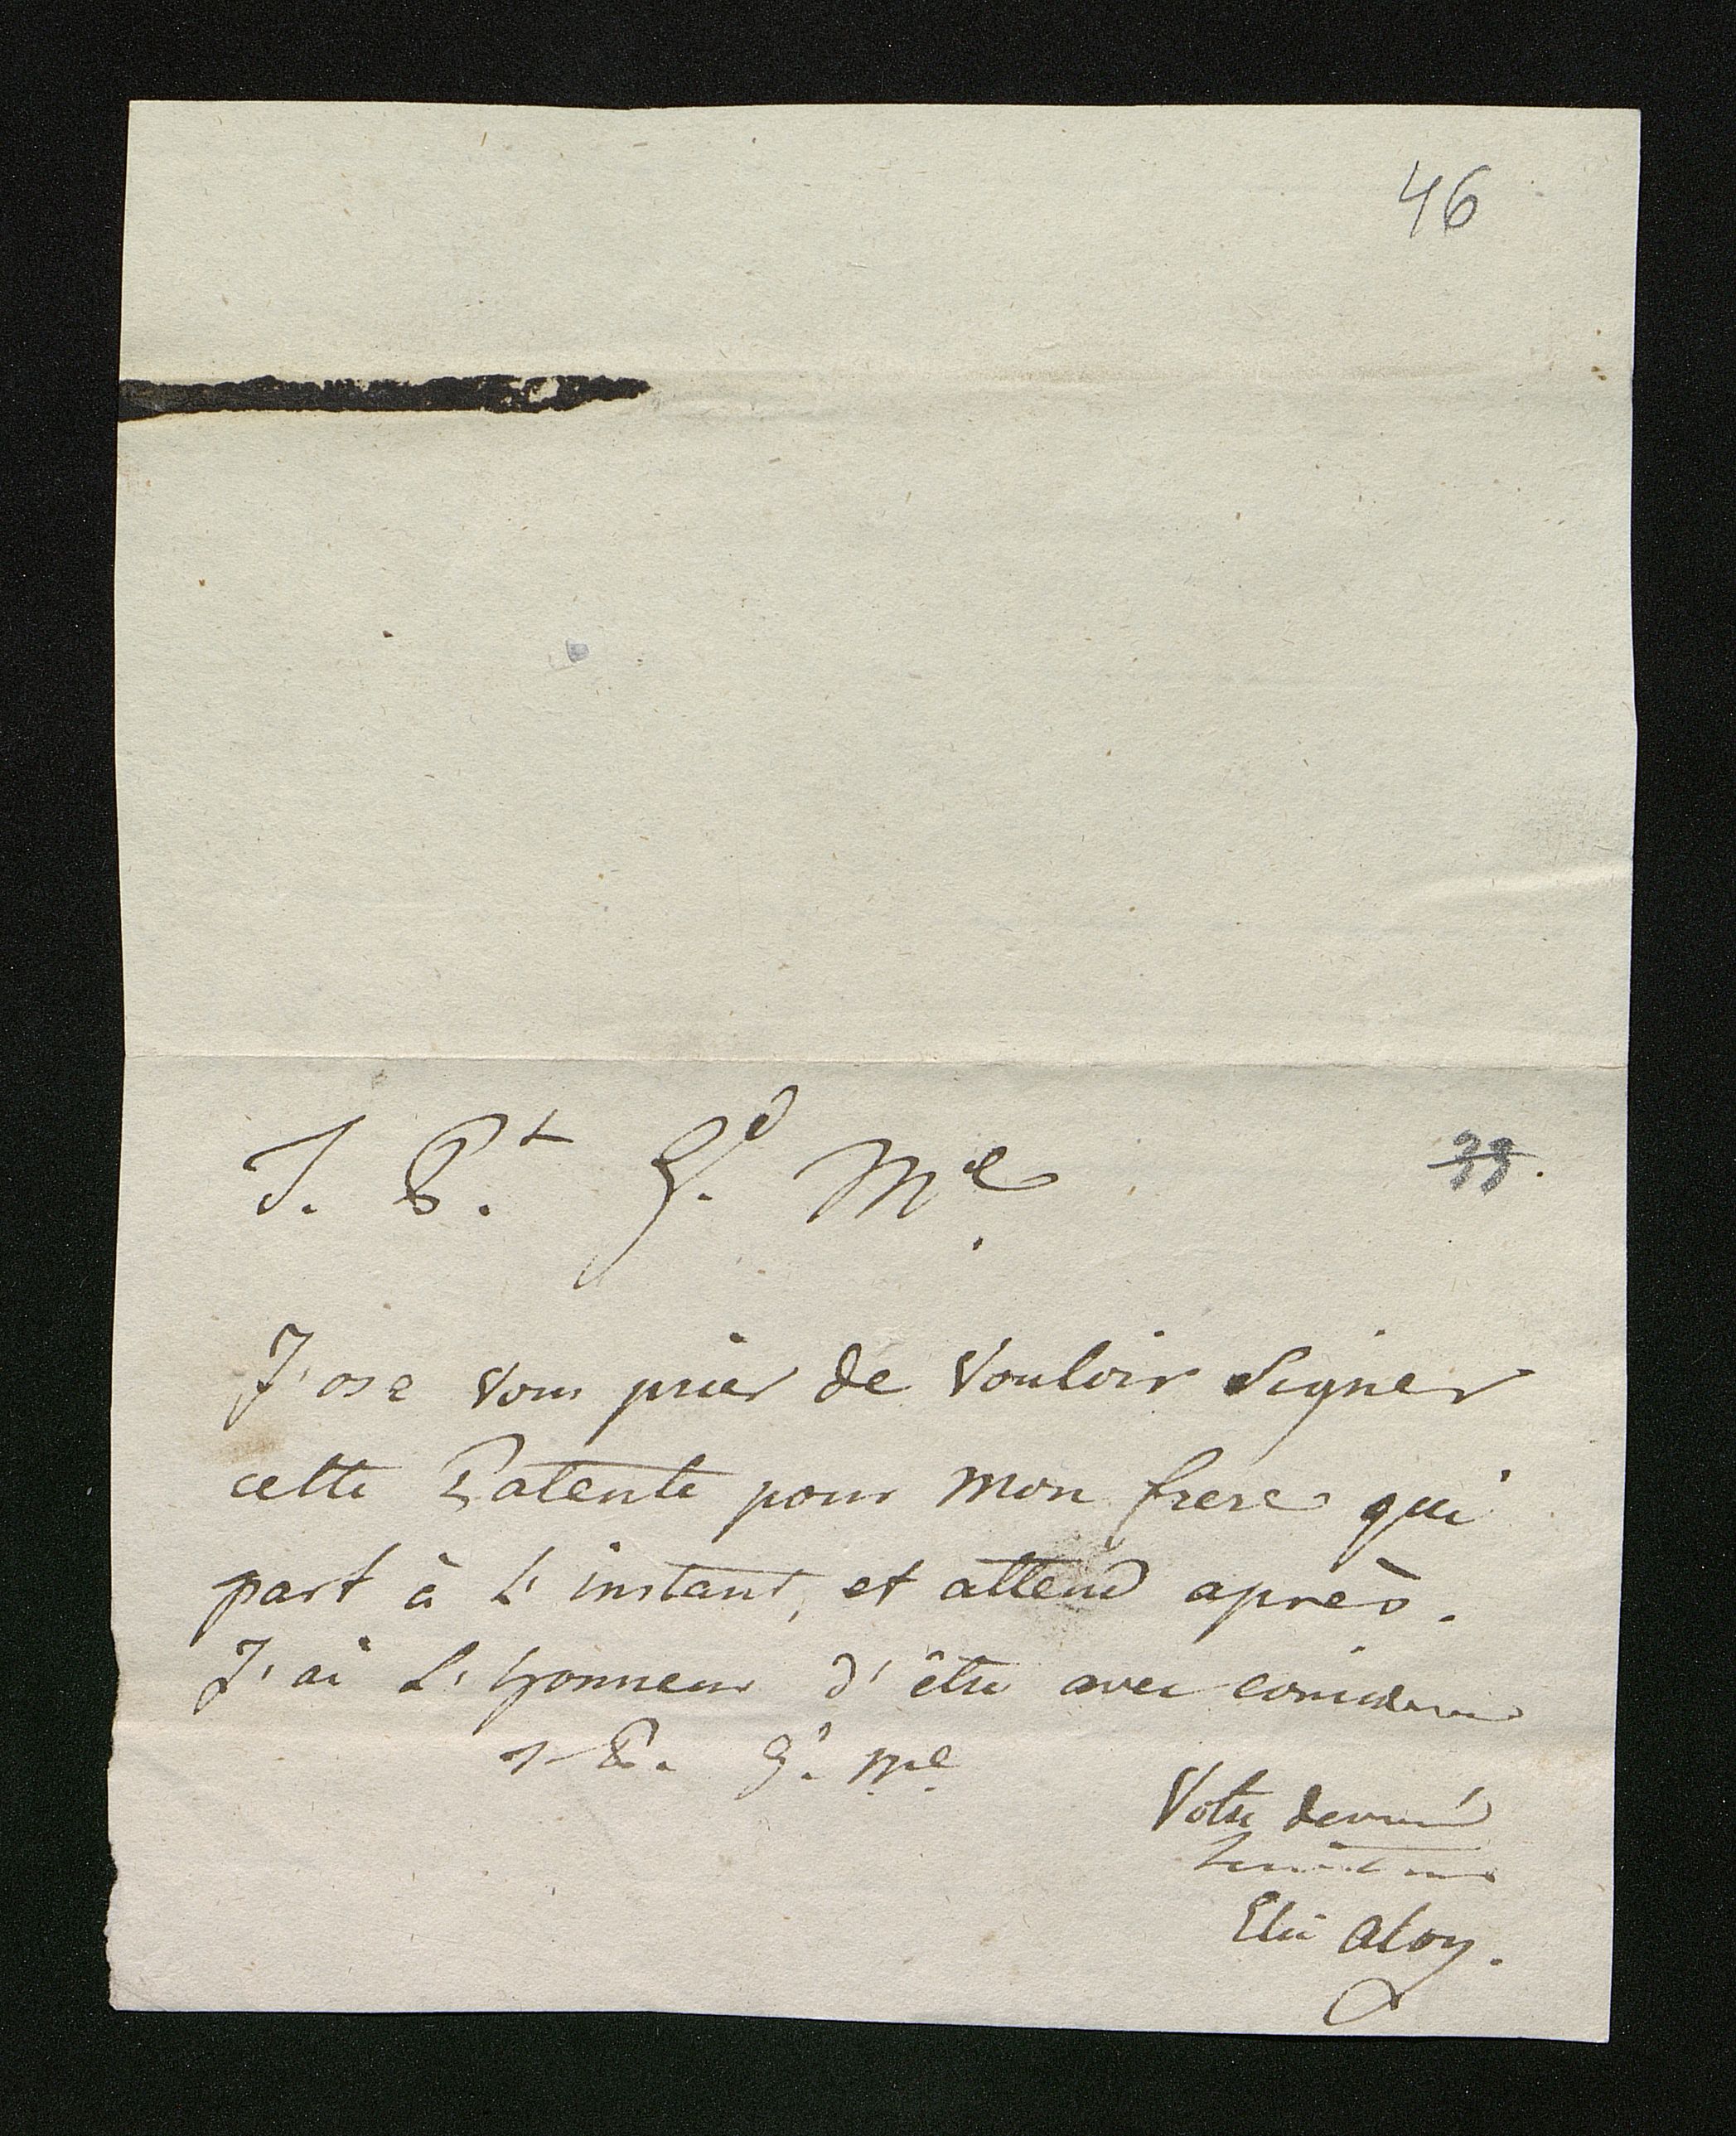 46
T. P.t G.d M.e
33.
J'ose vous prier de Vouloir Signer
cette Patente pour mon frere qui
part à L'instant, et attend après.
J'ai L'honneur d'être avec
T. P. G.d M.e
Votre devoué
Elie Aloy.